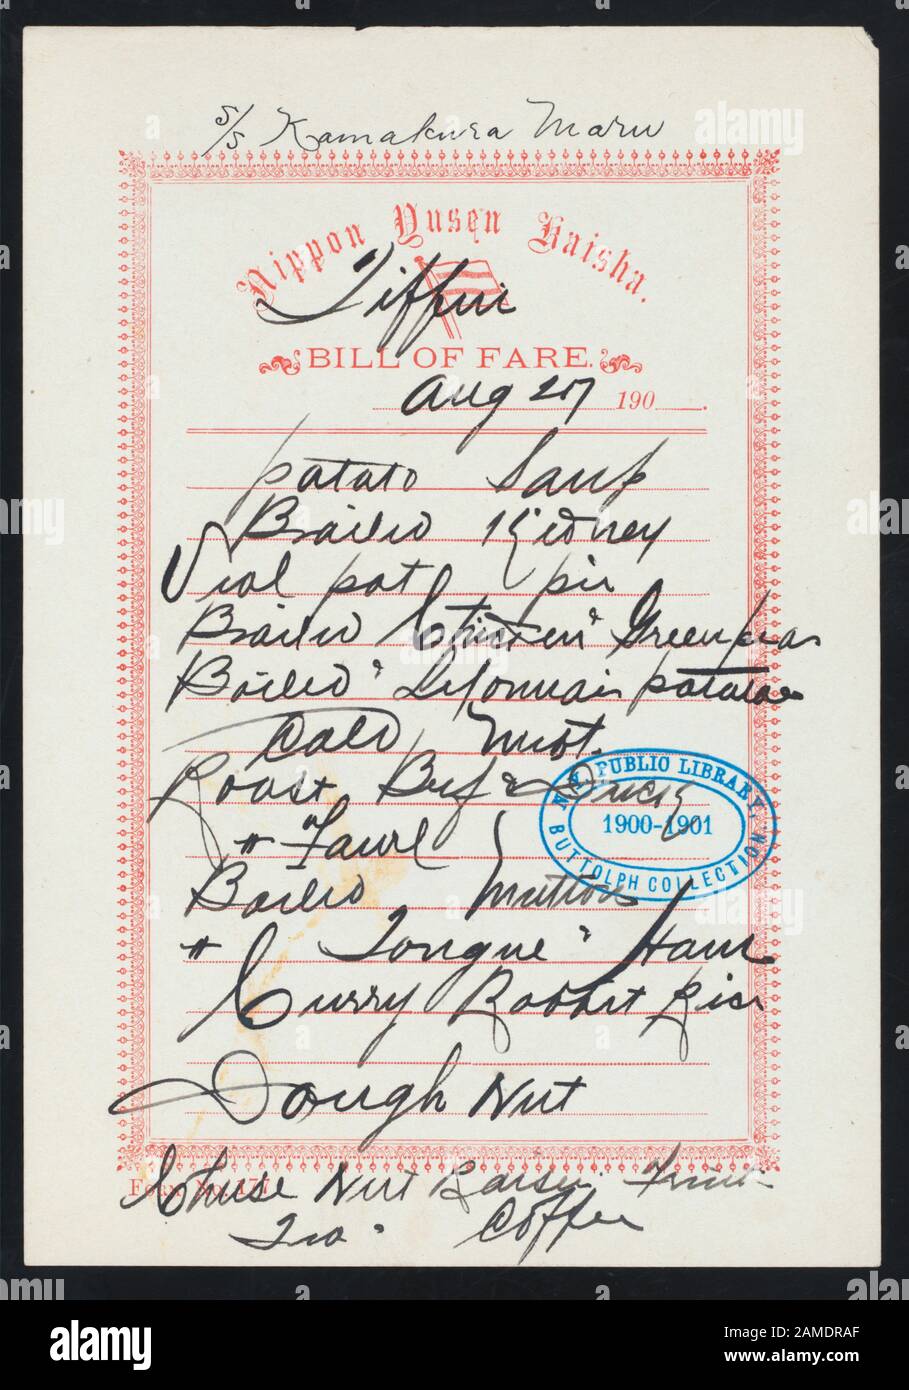 S/S Kamakura Maru
Nippon Yusen Kaisha.
Tiffin
BILL OF FARE.
Aug 27 190 .
Potato Soup
Broiled Kidney
Veal pot pie
Boiled Chicken " Green peas
Boiled " Lyonnais potatoes
Cold Meat.
Roast Beef & Duck
" Fowl
Boiled Mutton
" Tongue " Ham
Curry Rabbit Rice
Dough Nut
Form No. III
Cheese Nut Raisin Fruit
Tea " Coffee
N.Y. PUBLIC LIBRARY,
1900-1901
BUTTOLPH COLLECTION
alamy
alamy
Image ID: 2AMDRAF
www.alamy.com